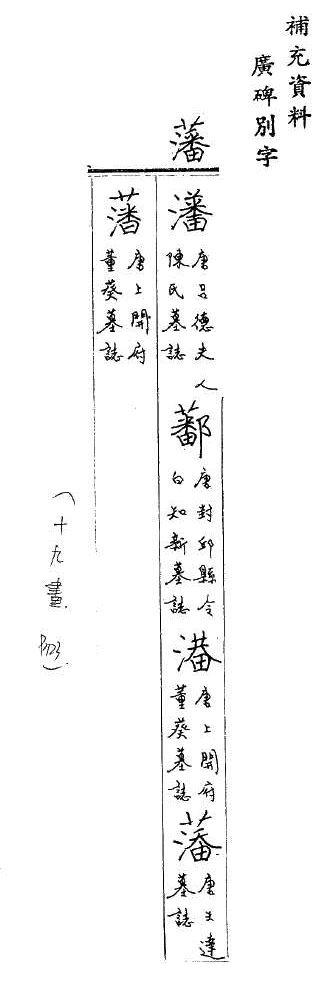 補充資料
廣碑別字
藩
唐呂德夫人
陳氏墓誌
唐封邱縣令
白知新墓誌
唐上開府
董葵墓誌
藩
墓誌
藩
唐上開府
董葵墓誌
(十九畫. P723)